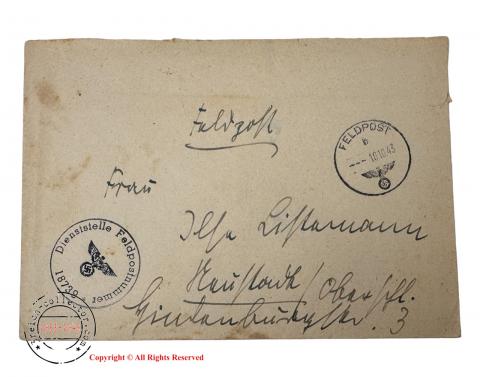 Feldpost
FELDPOST
b
10.10.43
Frau
Ilse Listemann
Neustadt / Oberschl.
Hindenburgstr. 3
Dienststelle Feldpostnummer
18739
reich-collector.com
Copyright © All Rights Reserved